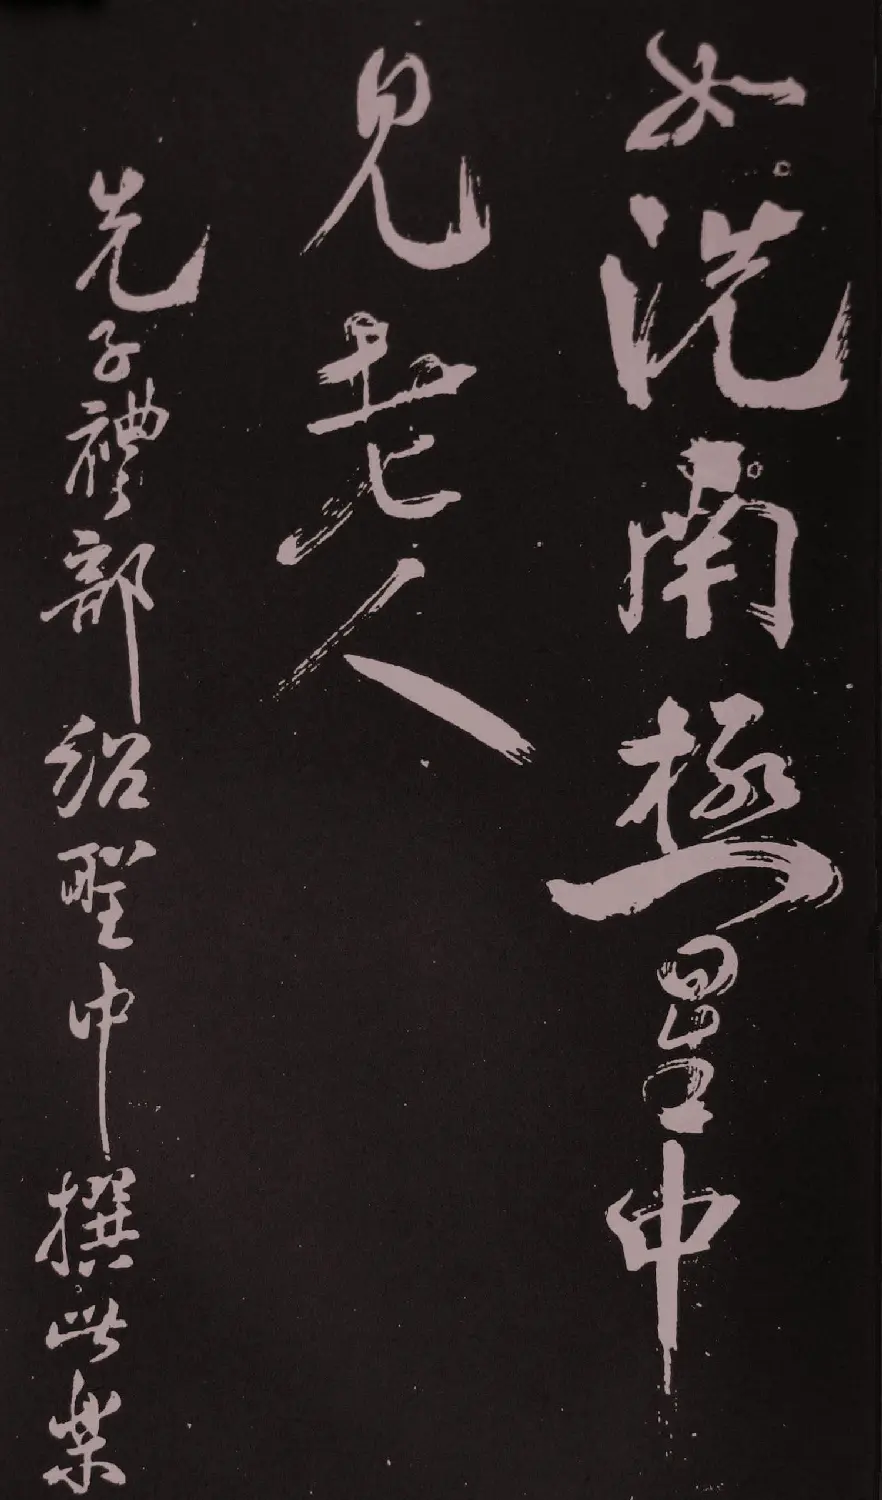 如洗南極星中
見老人
先子禮部紹聖中撰此樂